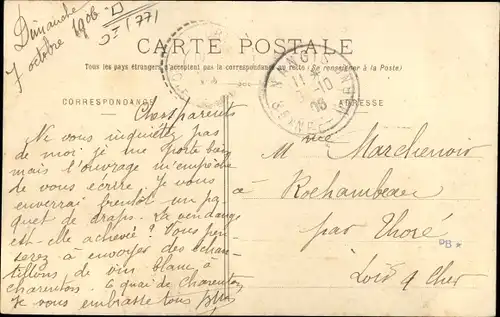 Dimanche
7 octobre 1906
CARTE POSTALE
Tous les pays étrangers n'acceptent pas la correspondance au recto (Se renseigner à la Poste)
CORRESPONDANCE
ADRESSE
Chers parents
Ne vous inquiétez pas
de moi je me porte bien
mais l'ouvrage m'empêche
de vous écrire. Je vous
enverrai bientôt un pa
quet de draps. La vendange
est-elle achevée? Vous pen
serez à envoyer des échan
tillons de vin blanc à
charenton. quai de Charenton
Je vous embrasse tous
Mme Marchenoir
à Rochambeau
par Thoré
Loir & Cher